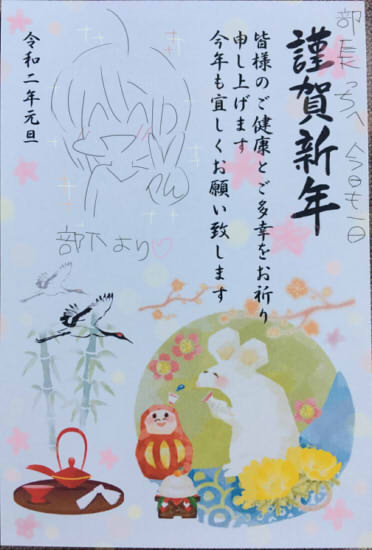 部長っちへ 今日も一日
謹賀新年
皆様のご健康とご多幸をお祈り
申し上げます
今年も宜しくお願い致します
令和二年元旦
部下より♡